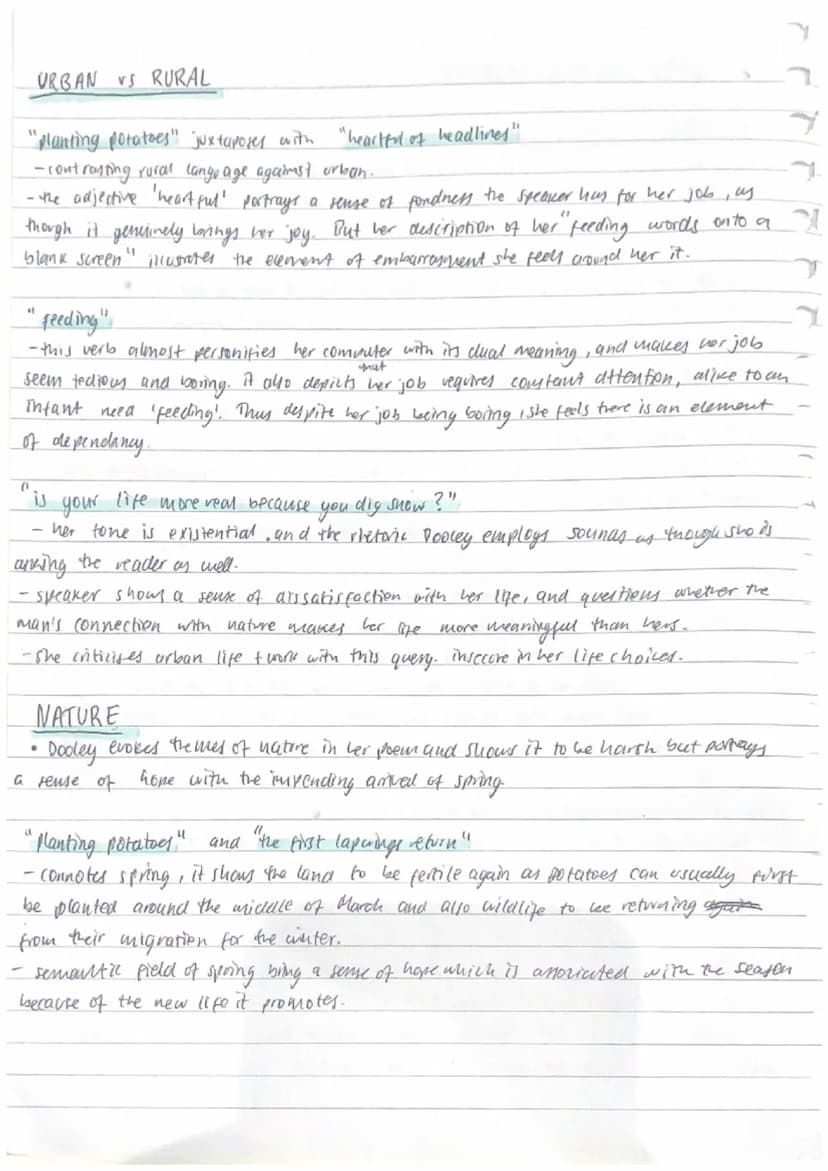 URBAN vs RURAL
"planting potatoes" juxtaposes with "heartful of headlines"
- contrasting rural language against urban.
- the adjective 'heartful' portrays a sense of fondness the speaker has for her job, as
though it genuinely brings her joy. But her description of her "feeding words onto a
blank screen" illustrates the element of embarrassment she feels around her it.
"feeding"
- this verb almost personifies her computer with its dual meaning, and makes her job
seem tedious and boring. it also depicts that her job requires constant attention, alike to an
infant need 'feeding'. Thus despite her job being boing, she feels there is an element
of dependancy.
"is your life more real because you dig snow?"
- her tone is existential, and the rhetoric Dooley employs sounds as though she is
asking the reader as well.
- speaker shows a sense of dissatisfaction with her life, and questions whether the
man's connection with nature makes her life more meaningful than hers.
- she criticises urban life + work with this query. insecure in her life choices.
NATURE
• Dooley evokes themes of nature in her poem and shows it to be harsh but portrays
a sense of hope with the impending arrival of spring
"planting potatoes" and "the first lapwings return"
- connotes spring, it shows the land to be fertile again as potatoes can usually first
be planted around the middle of March and also wildlife to be returning again
from their migration for the winter.
- semantic field of spring bring a sense of hope which is associated with the season
because of the new life it promotes.